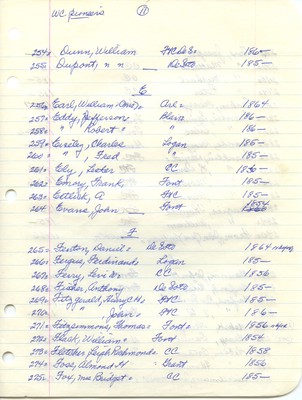 WC pioneers 11
254. Dunn, William Ft C De So 186-
255. Dupont, " " De Soto 185-
E
256. Earl, William Arl. 1864
257. Eddy, Jefferson Blair 186-
258. " Robert " 186-
259. Charles Logan 185-
260. " , Fred " 185-
261. Ely, CC 1856-
262. Emory, Frank Font 185-
263. A FtC 185-
264. Evans, John Font 1854
F
265. Fenton, Daniel De Soto 1864
266. Ferdinand Logan 185-
267. Ferry, Levi W CC 1856
268. Fisher, Anthony De Soto 185-
269. Fitzgerald, FtC 185-
270. " , John FtC 186-
271. Fitzsimmons, Thomas Font. 1856
272. Flack, William Font 1854
273. Fletcher, Leigh Richmond CC 1858
274. Foss, Almond H Grant 1856
275. Fox, mrs Bridget CC 185-